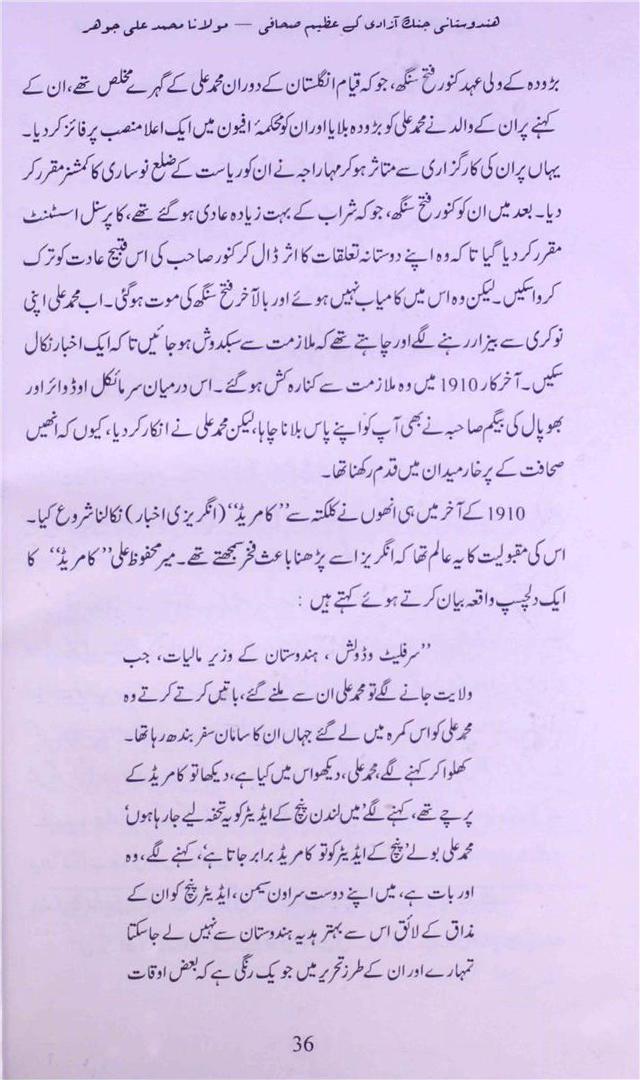 ھندوستانی جنگ آزادی کے عظیم صحافی — مولانا محمد علی جوھر
بڑودہ کے ولی عہد کنور فتح سنگھ، جو کہ قیام انگلستان کے دوران محمد علی کے گہرے مخلص تھے، ان کے
کہنے پر ان کے والد نے محمد علی کو بڑودہ بلایا اور ان کو محکمۂ افیون میں ایک اعلا منصب پر فائز کر دیا۔
یہاں پر ان کی کارگزاری سے متاثر ہو کر مہاراجہ نے ان کو ریاست کے ضلع نوساری کا کمشنر مقرر کر
دیا۔ بعد میں ان کو کنور فتح سنگھ، جو کہ شراب کے بہت زیادہ عادی ہو گئے تھے، کا پرسنل اسسٹنٹ
مقرر کر دیا گیا تا کہ وہ اپنے دوستانہ تعلقات کا اثر ڈال کر کنور صاحب کی اس قبیح عادت کو ترک
کرواسکیں۔ لیکن وہ اس میں کامیاب نہیں ہوئے اور بالآخر فتح سنگھ کی موت ہو گئی۔ اب محمد علی اپنی
نوکری سے بیزار رہنے لگے اور چاہتے تھے کہ ملازمت سے سبکدوش ہو جائیں تا کہ ایک اخبار نکال
سکیں۔ آخر کار 1910 میں وہ ملازمت سے کنارہ کش ہو گئے۔ اس درمیان سر مائکل اوڈوائر اور
بھوپال کی بیگم صاحبہ نے بھی آپ کو اپنے پاس بلانا چاہا، لیکن محمد علی نے انکار کر دیا، کیوں کہ انھیں
صحافت کے پر خار میدان میں قدم رکھنا تھا۔
1910 کے آخر میں ہی انھوں نے کلکتہ سے ”کامریڈ“ (انگریزی اخبار) نکالنا شروع کیا۔
اس کی مقبولیت کا یہ عالم تھا کہ انگریز اسے پڑھنا باعث فخر سمجھتے تھے۔ میر محفوظ علی ”کامریڈ“ کا
ایک دلچسپ واقعہ بیان کرتے ہوئے کہتے ہیں :
”سر فلیٹ وڈولش، ہندوستان کے وزیر مالیات، جب
ولایت جانے لگے تو محمد علی ان سے ملنے گئے، باتیں کرتے کرتے وہ
محمد علی کو اس کمرہ میں لے گئے جہاں ان کا سامان سفر بندھ رہا تھا۔
کھلوا کر کہنے لگے، محمد علی، دیکھو اس میں کیا ہے، دیکھا تو کامریڈ کے
پرچے تھے، کہنے لگے ’میں لندن پنچ کے ایڈیٹر کو یہ تحفہ لیے جا رہا ہوں‘
محمد علی بولے ’پنچ کے ایڈیٹر کو تو کامریڈ برابر جاتا ہے‘، کہنے لگے، وہ
اور بات ہے، میں اپنے دوست سر اون سیمن، ایڈیٹر پنچ کو ان کے
مذاق کے لائق اس سے بہتر ہدیہ ہندوستان سے نہیں لے جا سکتا
تمہارے اور ان کے طرز تحریر میں جو یک رنگی ہے کہ بعض اوقات
36